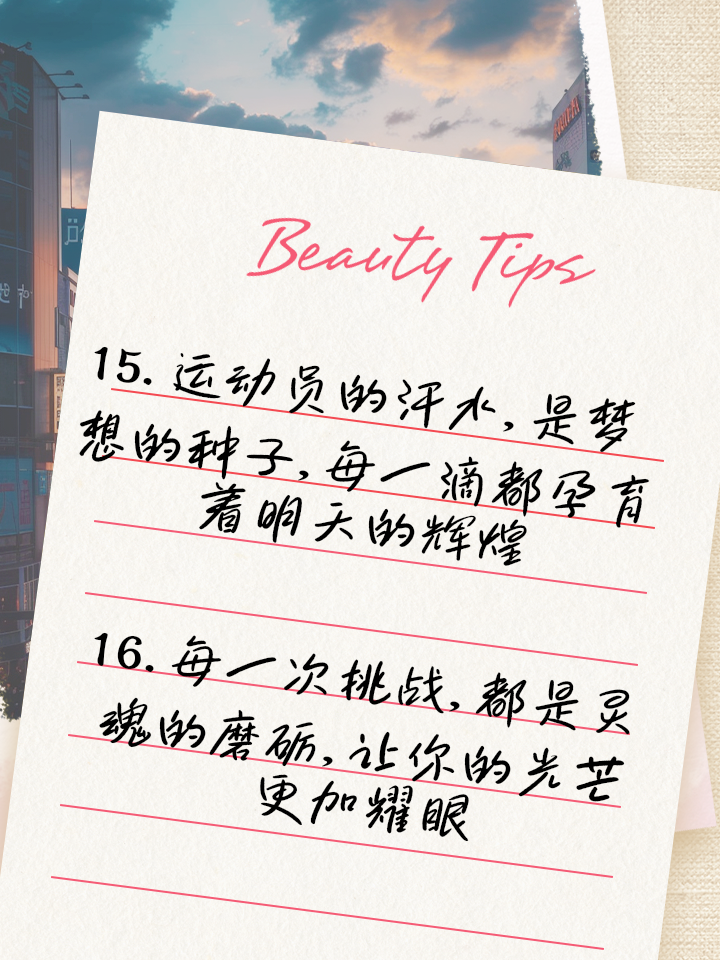 Beauty Tips
15. 运动员的汗水，是梦
想的种子，每一滴都孕育
着明天的辉煌
16. 每一次挑战，都是灵
魂的磨砺，让你的光芒
更加耀眼